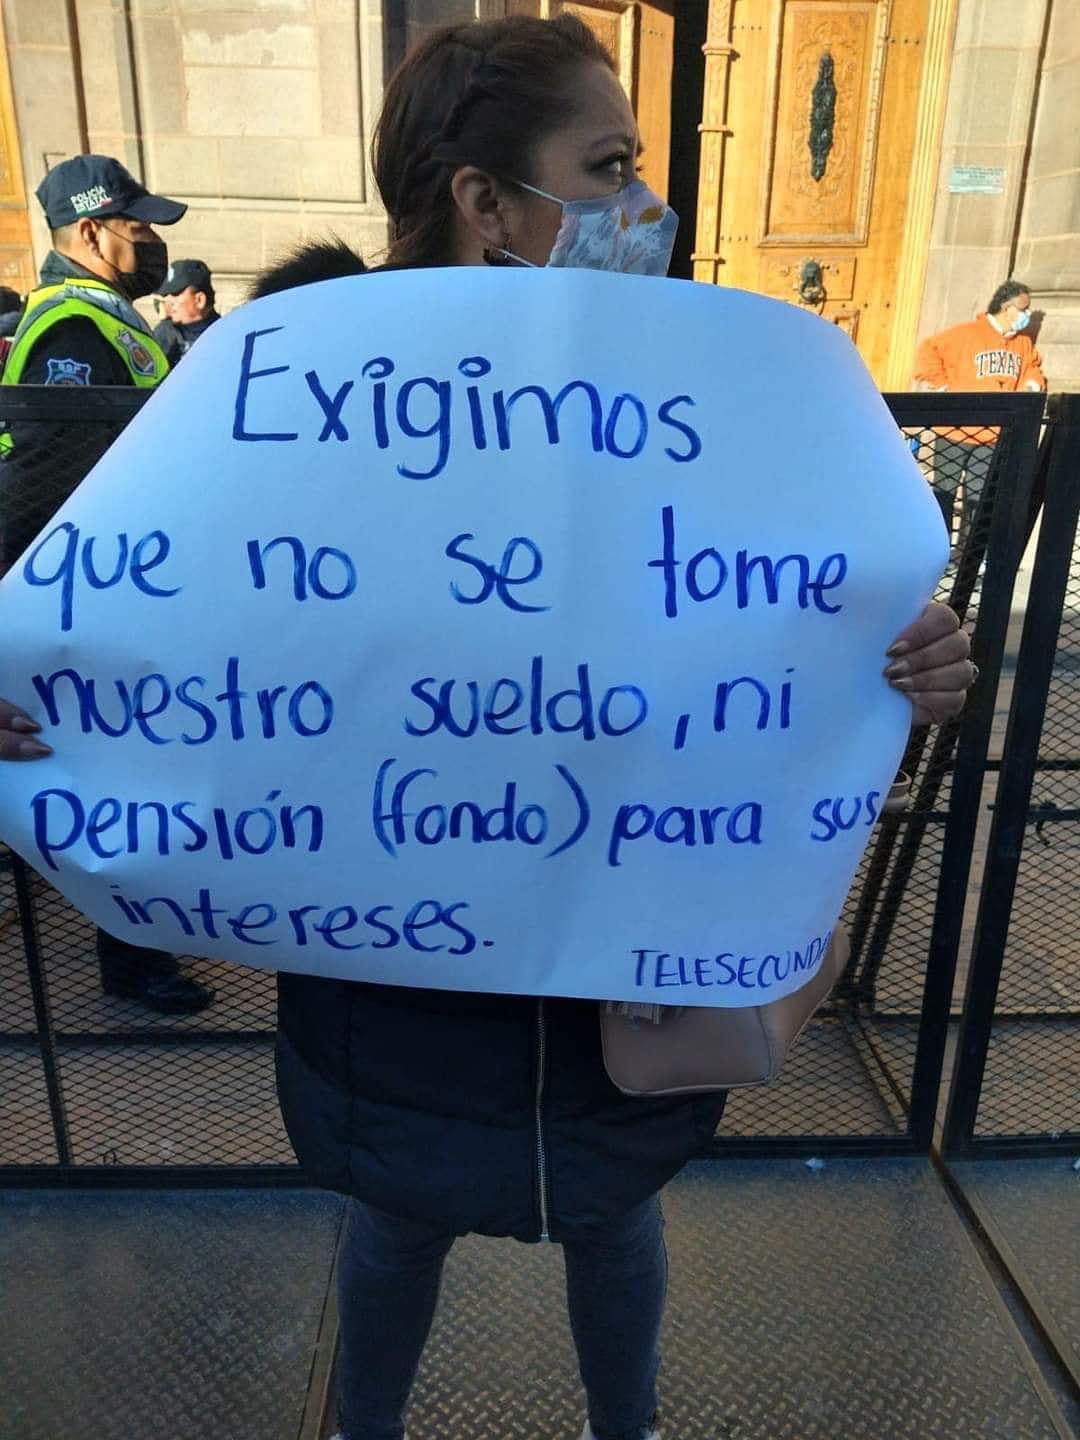 POLICÍA
ESTATAL
SSP
TEXAS
Exigimos
que no se tome
nuestro sueldo, ni
pensión (fondo) para sus
intereses.
TELESECUNDA